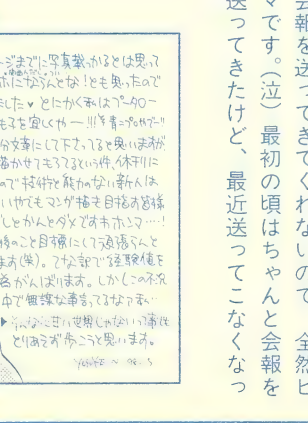 会報を送ってきてくれないので、全然ヒ
マです。(泣)最初の頃はちゃんと会報を
送ってきたけど、最近送ってこなくなっ
ージまでに写真載っかるとは思って
ならんとな!とも思ったので
した♥とにかく私はプータロー
もを宜しくやー!!!
分文章にして下さってると思いますが
描かせてもろてるという件、休刊に
ので技術と能力のない新人は
いやでもマンガ描き目指すお客様
しとかんとダメですわホンマ…!
後のこと目標にしてう頑張らんと
ます(笑)。てな訳で経験値を
がんばります。しかしこの不況
中で無謀な事言ってるなァあい
▶そんなに甘い世界じゃないって事で
とりあえず歩こうと思います。